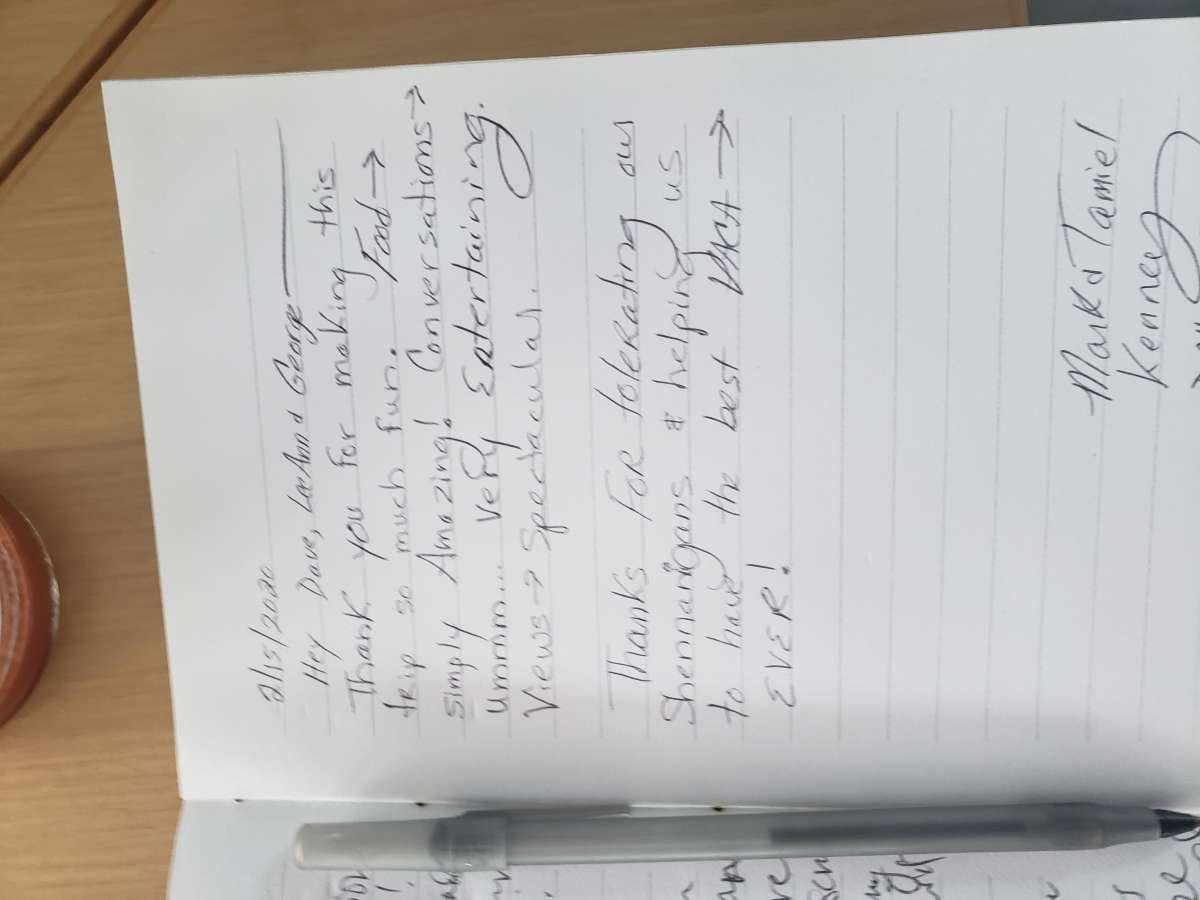 2/15/2020
Hey Dave, LeeAnn & George
Thank you for making this
trip so much fun. Food →
Simply Amazing! Conversations →
ummm... very Entertaining.
Views → Spectacular.
Thanks for tolerating our
Shennanigans & helping us
to have the best VACA →
EVER!
Mark & Tamiel
Kenney